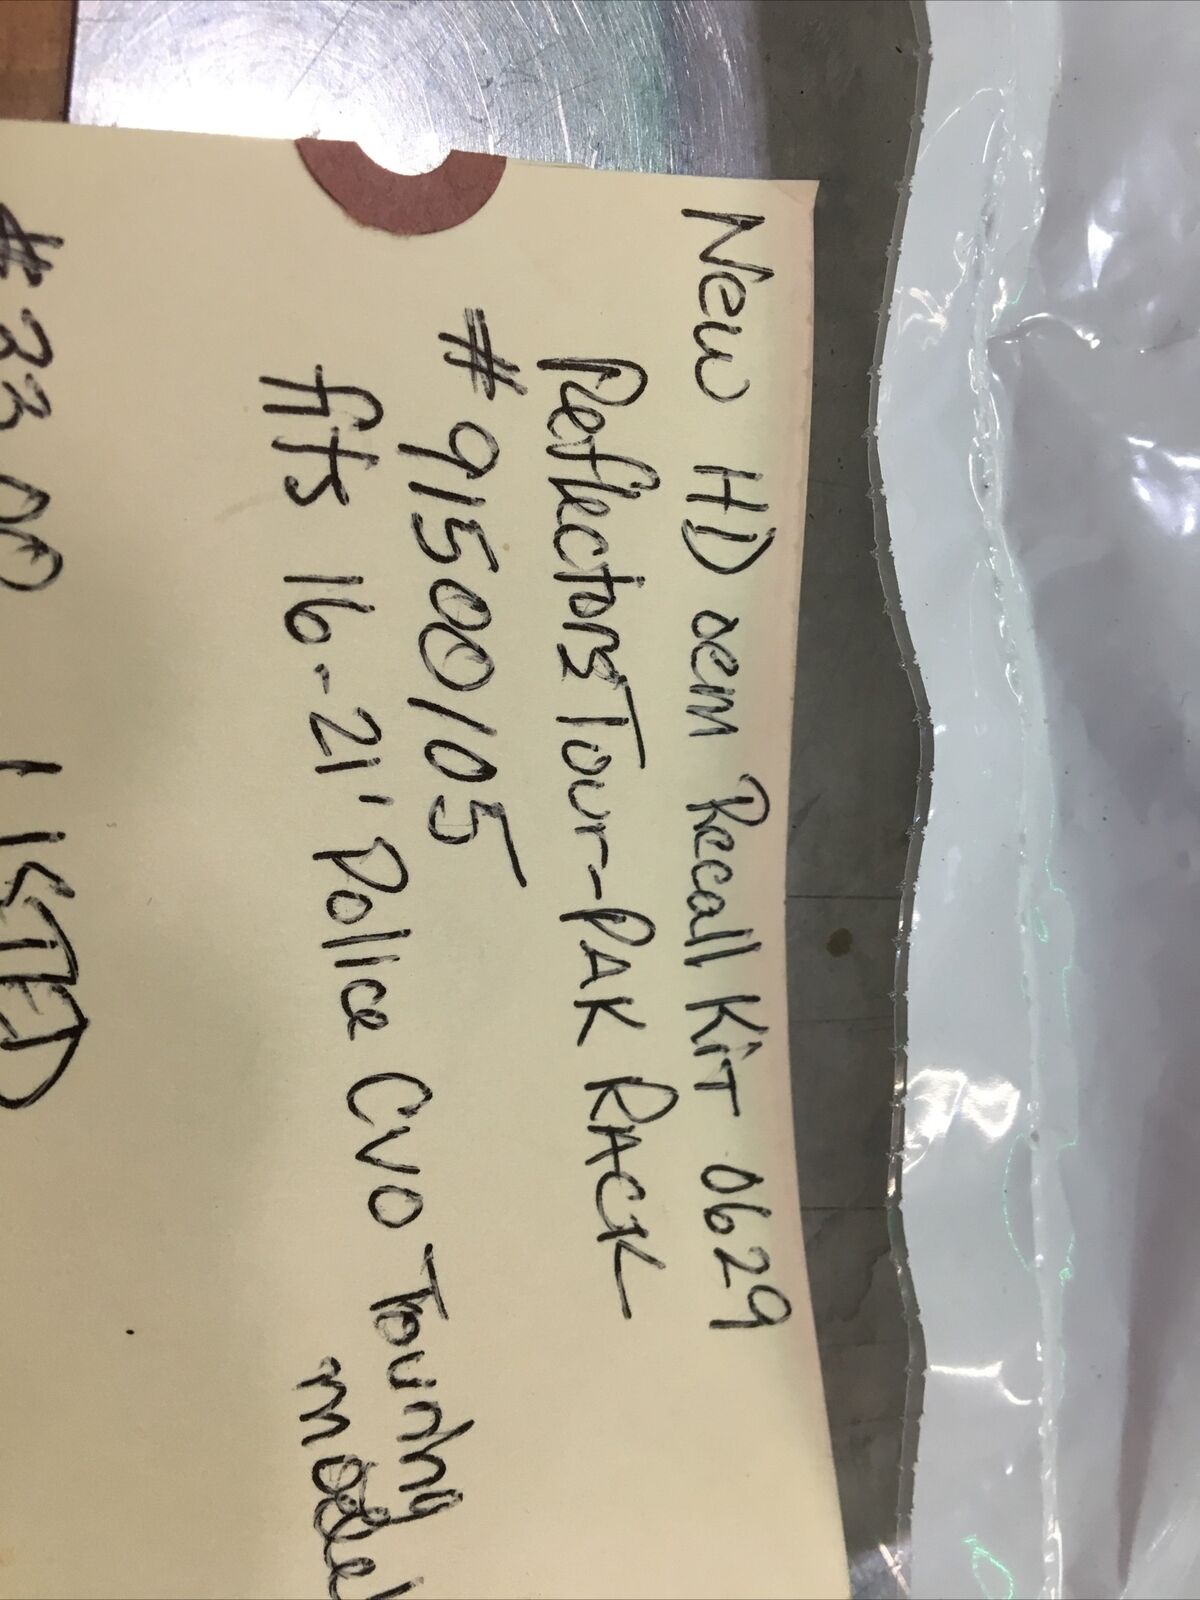 New HD oem Recall Kit 0629
Reflectors Tour-PAK RACK
#91500105
fits 16-21' Police CVO Touring
model
LISTED